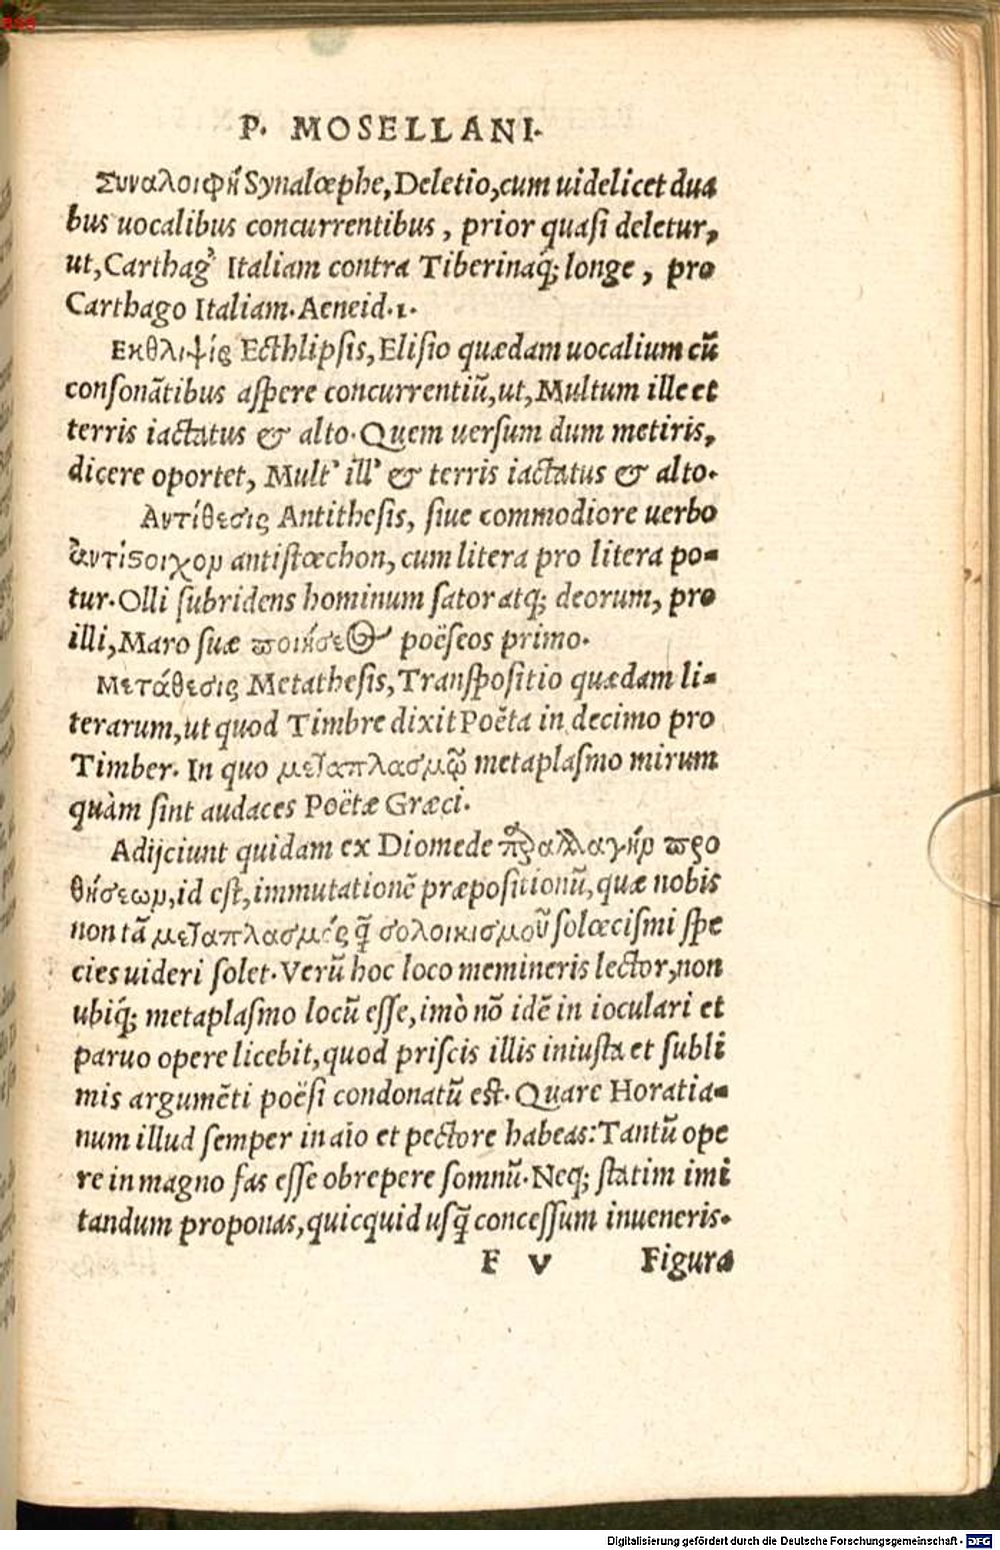 P. MOSELLANI.
Συναλοιφή Synalœphe, Deletio, cum uidelicet dua
bus uocalibus concurrentibus, prior quasi deletur,
ut, Carthag' Italiam contra Tiberinaq; longe, pro
Carthago Italiam. Aeneid. 1.
Εκθλιψίς Ecthlipsis, Elisio quædam uocalium cū
consonātibus aspere concurrentiū, ut, Multum ille et
terris iactatus & alto. Quem uersum dum metiris,
dicere oportet, Mult' ill' & terris iactatus & alto.
Αντίθεσις Antithesis, siue commodiore uerbo
ἀντίϛοιχον antistœchon, cum litera pro litera po-
tur. Olli subridens hominum sator atq; deorum, pro
illi, Maro suæ ποιήσεως poëseos primo.
Μετάθεσις Metathesis, Transpositio quædam li-
terarum, ut quod Timbre dixit Poëta in decimo pro
Timber. In quo μεταπλασμῷ metaplasmo mirum
quàm sint audaces Poëtæ Græci.
Adijciunt quidam ex Diomede παραλλαγὴν προ
θήσεων, id est, immutationē præpositionū, quæ nobis
non tā μεταπλασμός q̃ σολοικισμοῦ solœcismi spe
cies uideri solet. Verū hoc loco memineris lector, non
ubiq́; metaplasmo locū esse, imò nō idē in ioculari et
paruo opere licebit, quod priscis illis iniusta et subli
mis argumēti poësi condonatū est. Quare Horatia-
num illud semper in aīo et pectore habeas: Tantū ope
re in magno fas esse obrepere somnū. Neq; statim imi
tandum proponas, quicquid usq̃ concessum inueneris.
F V Figura
Digitalisierung gefördert durch die Deutsche Forschungsgemeinschaft - DFG